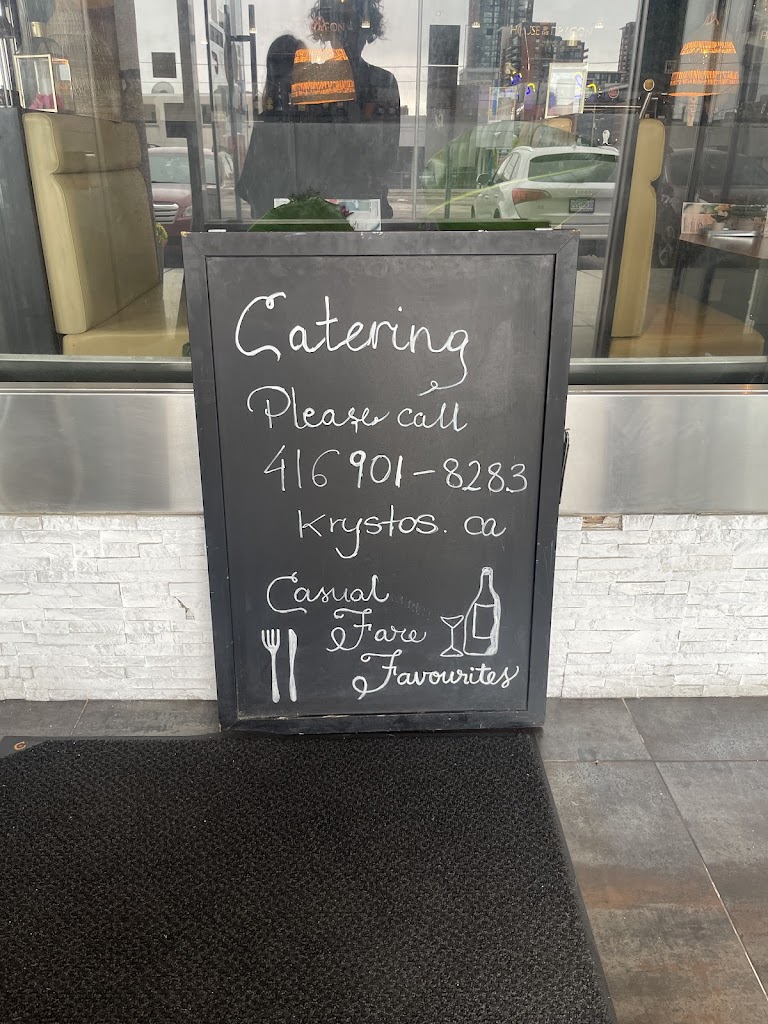 Catering
Please call
416 901-8283
krystos.ca
Casual
Fare
Favourites